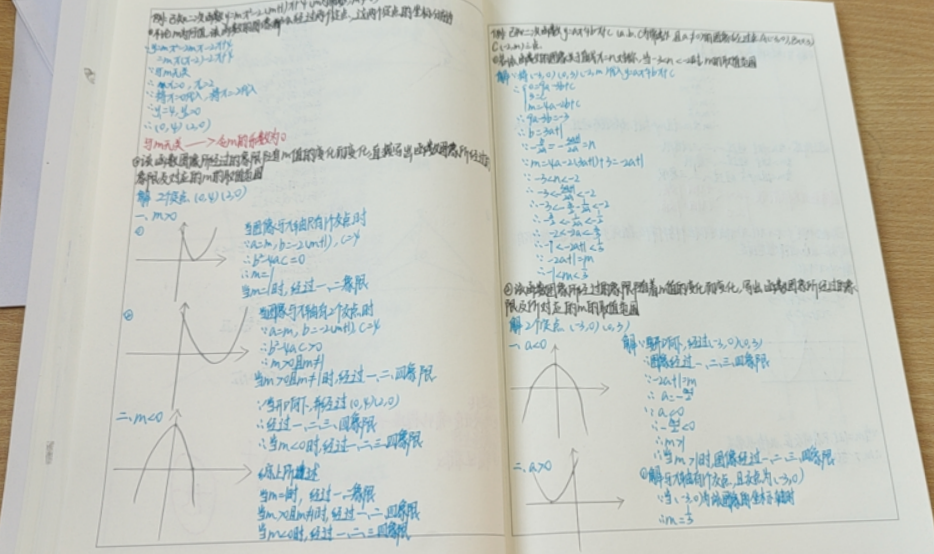 例 已知二次函数y=mx²-2(m+1)x+4
①不论m为何值,该函数的图像都会经过两个定点,这两个定点的坐标分别为
∴y=mx²-2mx-2x+4
=mx(x-2)-2x+4
∵与m无关
∴x=0, x=2
∴将x=0代入,将x=2代入
∴y=4, y=0
∴(0,4) (2,0)
与m无关 → 令m的系数为0
②该函数图像所经过的象限随着m值的变化而变化,直接写出函数图像所经过的
象限及对应的m的取值范围
解 2个定点 (0,4) (2,0)
一、m>0
①
当图像与x轴只有1个交点时
∵a=m, b=-2(m+1), c=4
∴b²-4ac=0
∴m=1
当m=1时,经过一、二象限
②
当图像与x轴有2个交点时
∵a=m, b=-2(m+1), c=4
∴b²-4ac>0
∴m>0且m≠1
当m>0且m≠1时,经过一、二、四象限
二、m<0
∵当开口向下,并经过(0,4)(2,0)
∴经过一、二、三、四象限
∴当m<0时,经过一、二、三、四象限
综上所述
当m=1时,经过一、二象限
当m>0且m≠1时,经过一、二、四象限
当m<0时,经过一、二、三、四象限
例 已知二次函数y=ax²+bx+c (a、b、c为常数,且a≠0)的图像经过点A(-3,0),B(0,3)
C(-2,m)三点
①若该函数的图像关于直线x=n对称,当-3<n<-2时,求m的取值范围
解:将(-3,0)(0,3)(-2,m)代入y=ax²+bx+c
∴0=9a-3b+c
3=c
m=4a-2b+c
∴9a-3b=-3
∴b=3a+1
∴m=4a-2(3a+1)+3=-2a+1
∵-3<n<-2
∵-2a+1=m
②该函数图像所经过的象限随着m值的变化而变化,写出函数图像所经过的象
限及所对应的m的取值范围
解 2个定点 (-3,0) (0,3)
一、a<0
解:∵开口向下,经过(-3,0)(0,3)
∴图像经过一、二、三、四象限
∵-2a+1=m
∵a<0
∴m>1
∴当m>1时,图像经过一、二、三、四象限
二、a>0
①解:与x轴有1个交点,且交点为(-3,0)